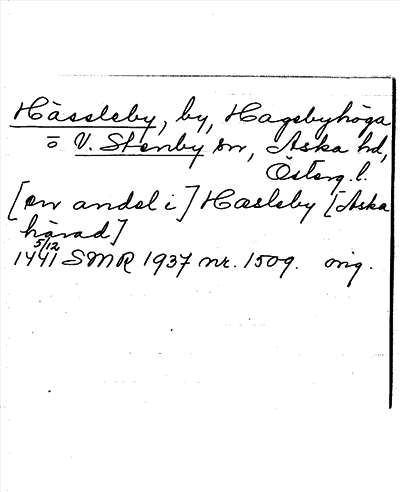 Hässleby, by, Hagebyhöga
o V. Stenby sn, Aska hd,
Österg. l.
[en andel i] Hasleby [Aska
härad]
5/12
1441 SMR 1937 nr. 1509. orig.